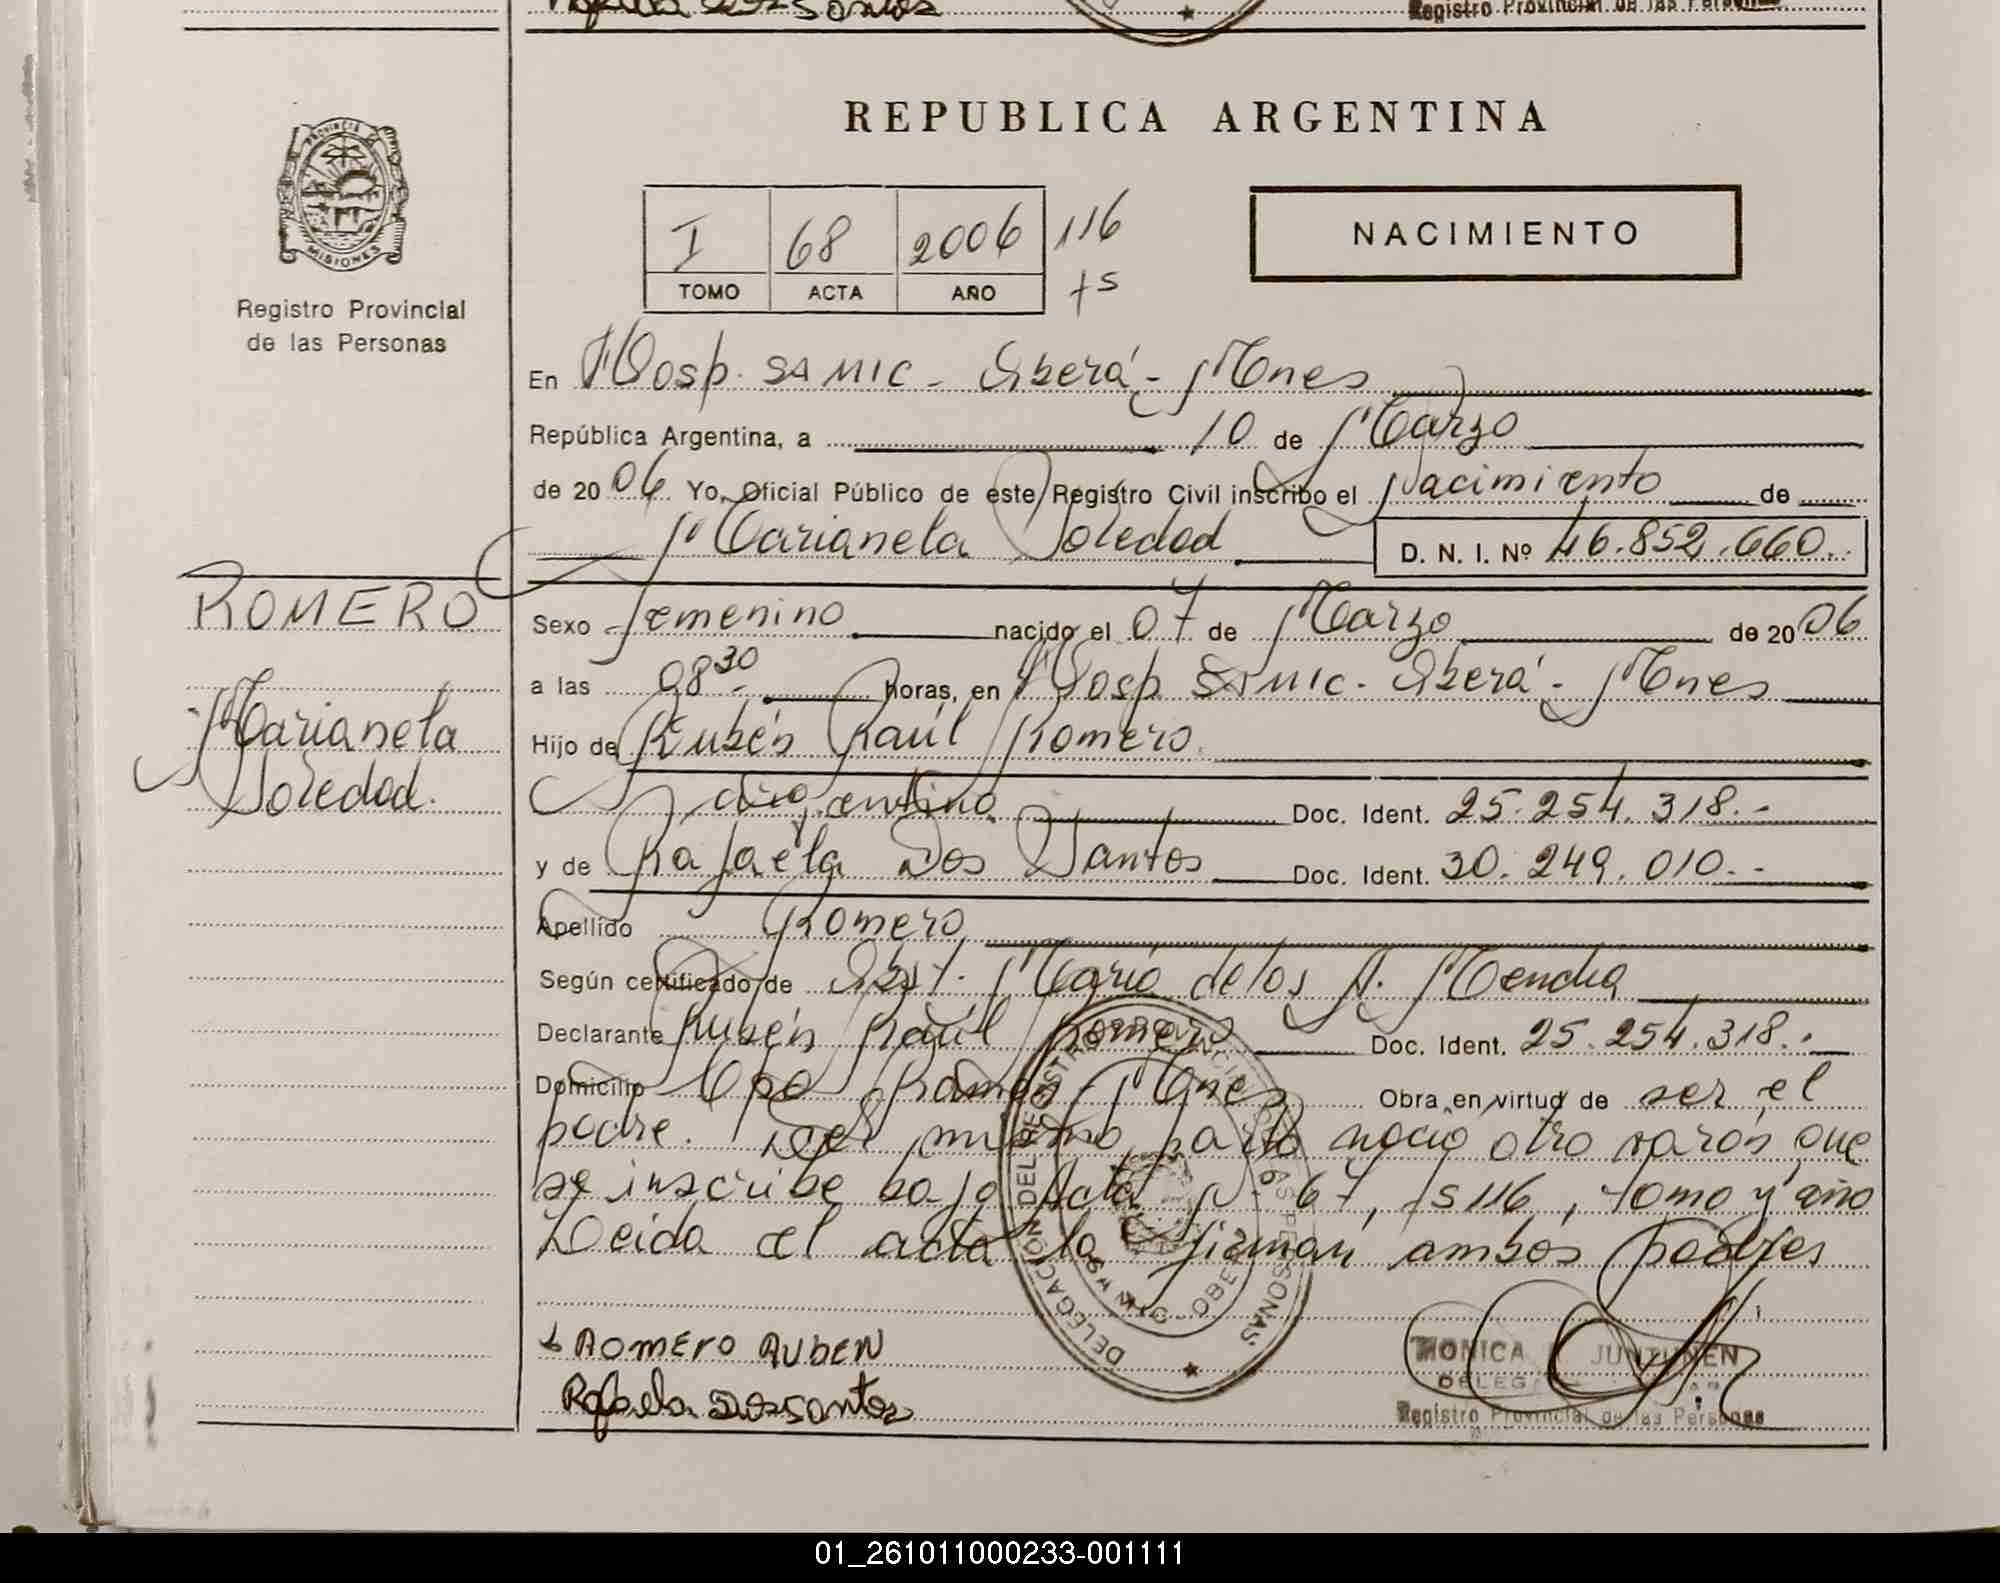 Registro Provincial de las Personas
REPUBLICA ARGENTINA
PROVINCIA DE
MISIONES
Registro Provincial
de las Personas
I 68 2006 116
TOMO ACTA AÑO ts
NACIMIENTO
En Hosp. SAMIC - Oberá - Mnes
República Argentina, a 10 de Marzo
de 2006 Yo, Oficial Público de este Registro Civil inscribo el Nacimiento de
Marianela Soledad D. N. I. Nº 46.852.660.
ROMERO
Marianela
Soledad.
Sexo femenino nacido el 07 de Marzo de 2006
a las 08 30 horas, en Hosp. SAMIC - Oberá - Mnes
Hijo de Rubén Raúl Romero
argentino Doc. Ident. 25.254.318.-
y de Rafaela Dos Santos Doc. Ident. 30.249.010.-
Apellido Romero
Según certificado de Obst. María de los A. Mendia
Declarante Rubén Raúl Romero Doc. Ident. 25.254.318.-
Domicilio Cpo Ramón - Mnes Obra en virtud de ser el
padre. Del mismo parto nació otro varón que
se inscribe bajo Acta Nº 67, ts 116, tomo y año
Leida el acta la firman ambos padres
ROMERO RUBEN
Rafaela Dos Santos
DELEGACION DEL REGISTRO PROVINCIAL DE LAS PERSONAS
OBERA
MONICA JUNTUNEN
DELEG
Registro Provincial de las Personas
01_261011000233-001111